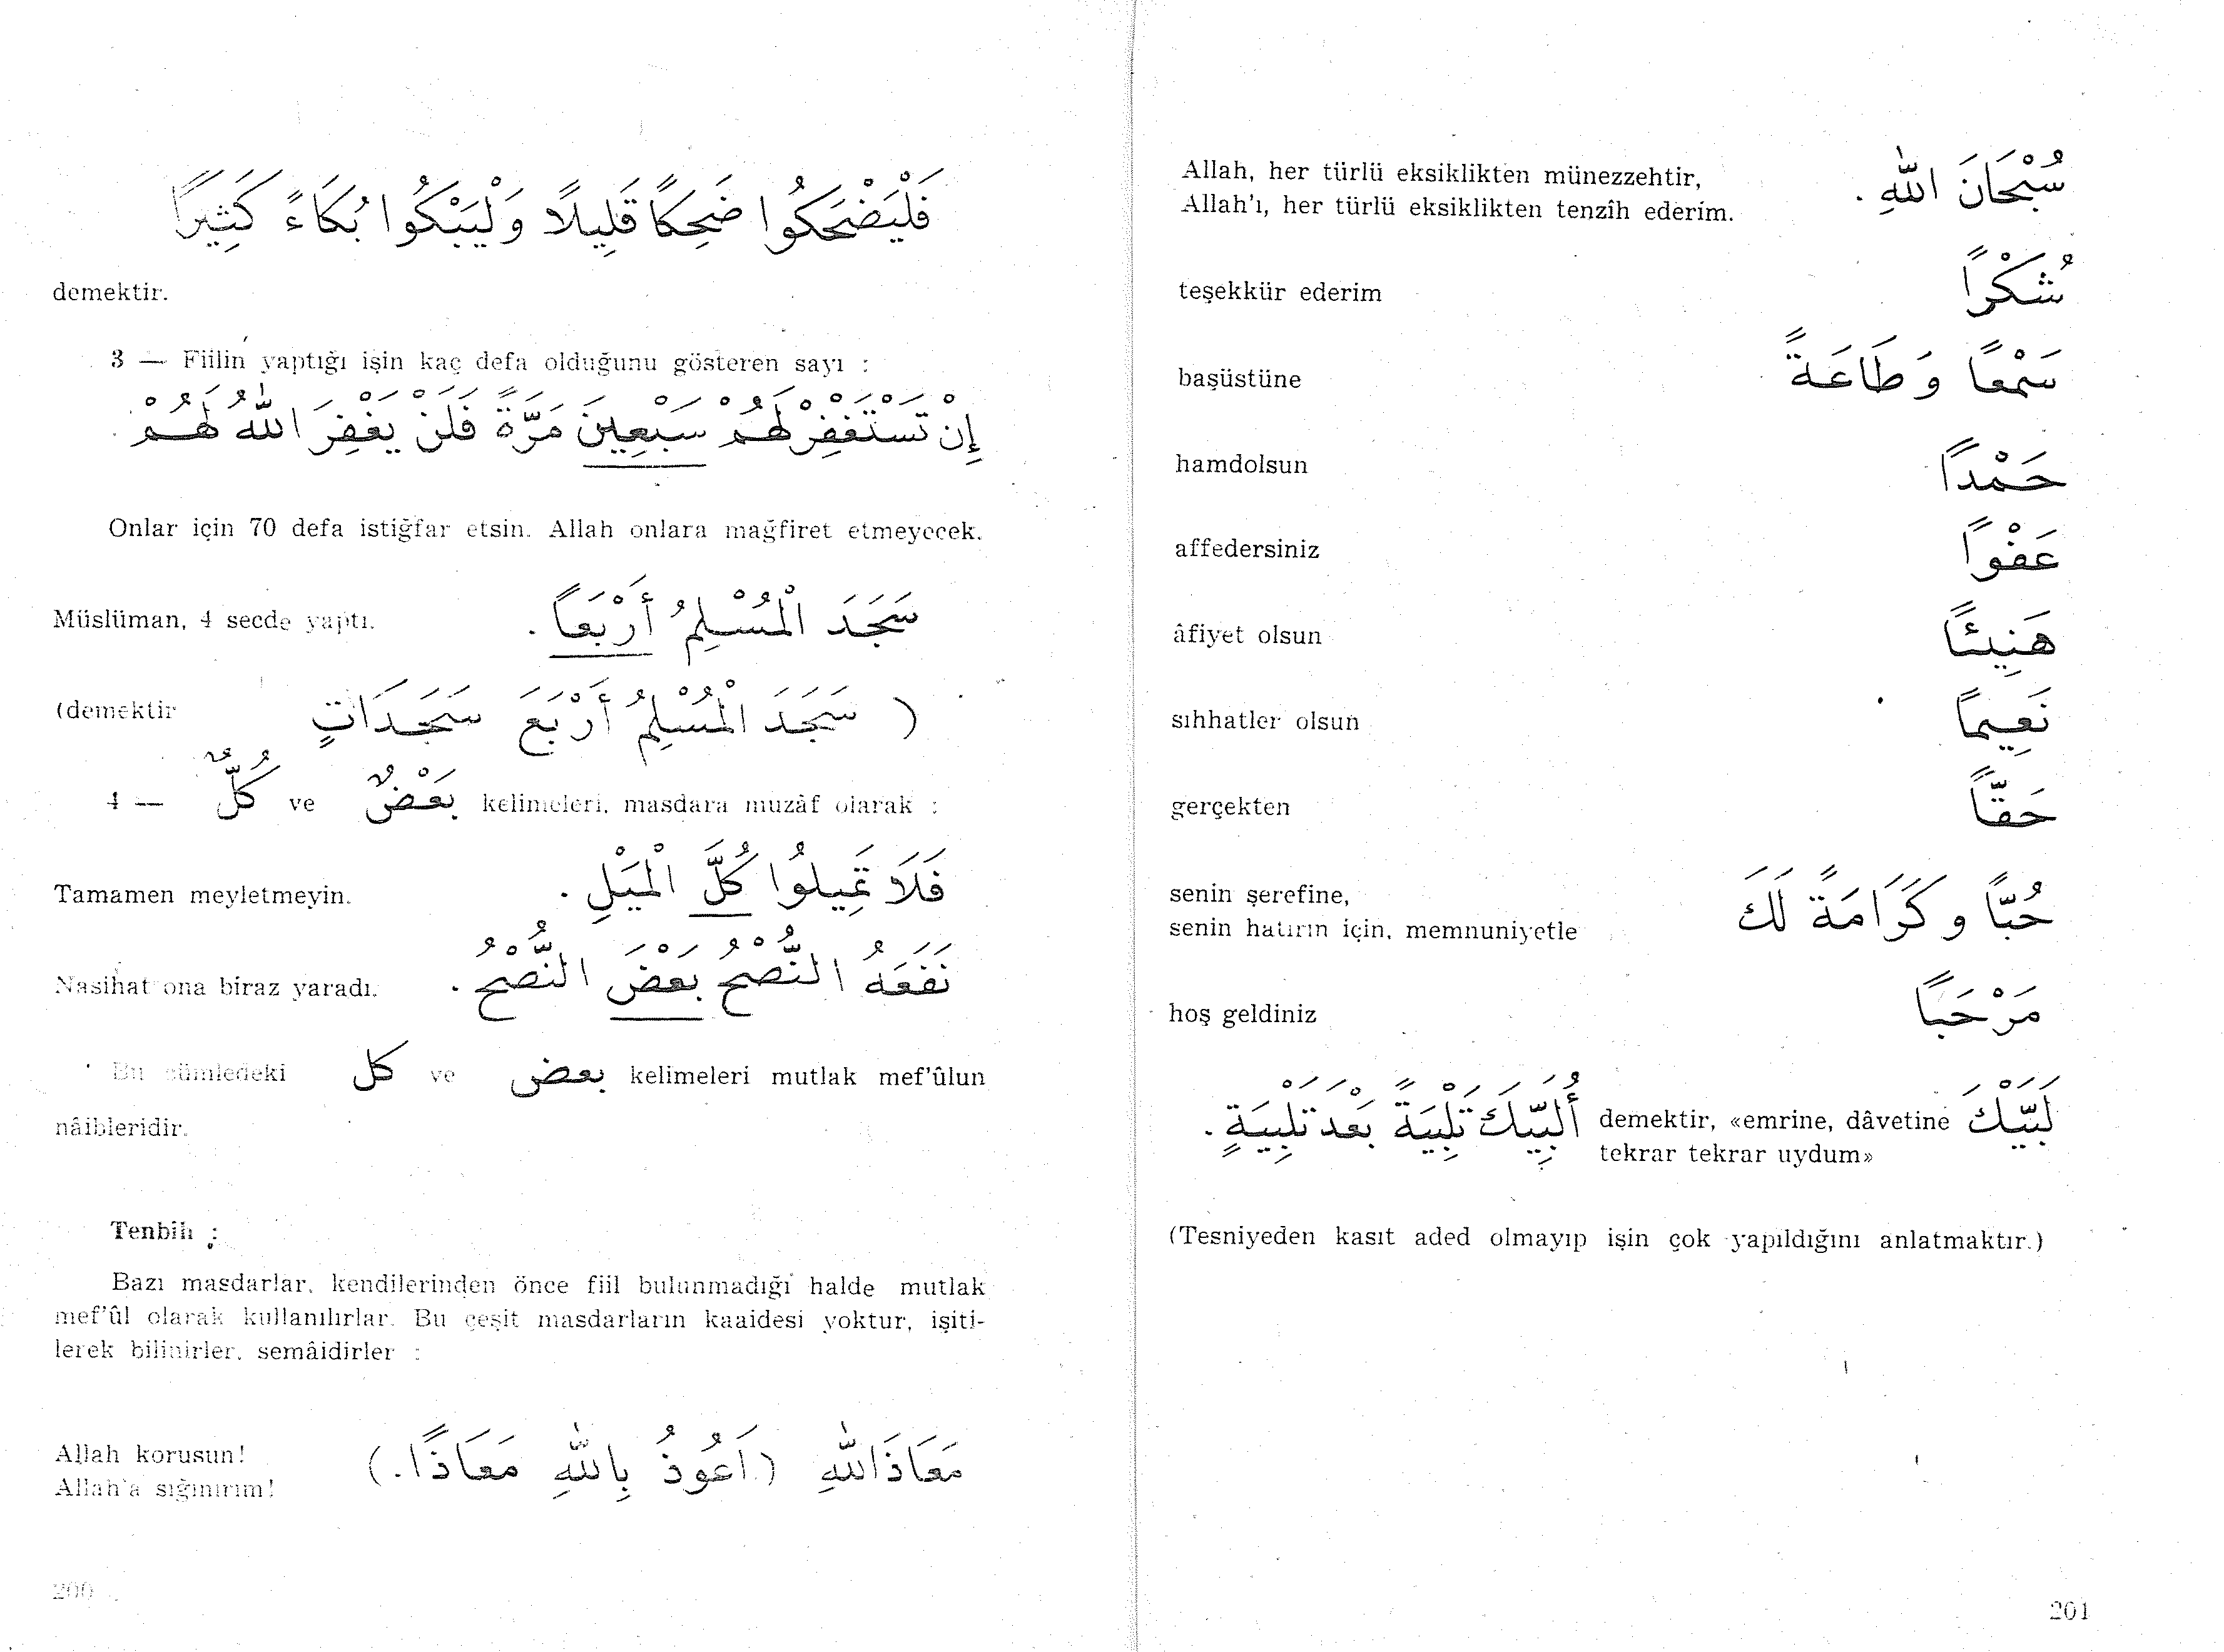 فَلْيَضْحَكُوا ضَحِكًا قَلِيلًا وَلْيَبْكُوا بُكَاءً كَثِيرًا
demektir.
3 — Fiilin yaptığı işin kaç defa olduğunu gösteren sayı :
إِنْ تَسْتَغْفِرْ لَهُمْ سَبْعِينَ مَرَّةً فَلَنْ يَغْفِرَ اللّٰهُ لَهُمْ .
Onlar için 70 defa istiğfar etsin. Allah onlara mağfiret etmeyecek.
Müslüman, 4 secde yaptı. سَجَدَ الْمُسْلِمُ أَرْبَعاً .
(demektir سَجَدَ الْمُسْلِمُ أَرْبَعَ سَجَدَاتٍ )
4 — كُلٌّ ve بَعْضٌ kelimeleri, masdara muzâf olarak :
Tamamen meyletmeyin. فَلَا تَمِيلُوا كُلَّ الْمَيْلِ .
Nasihat ona biraz yaradı. نَفَعَهُ النُّصْحُ بَعْضَ النُّصْحُ .
Bu cümledeki كل ve بعض kelimeleri mutlak mef'ûlun
nâibleridir.
Tenbîh :
Bazı masdarlar, kendilerinden önce fiil bulunmadığı halde mutlak
mef'ûl olarak kullanılırlar. Bu çeşit masdarların kaaidesi yoktur, işiti-
lerek bilinirler, semâidirler :
Allah korusun! مَعَاذَ اللّٰهِ (اَعُوذُ بِاللّٰهِ مَعَاذًا.)
Allah'a sığınırım!
200
Allah, her türlü eksiklikten münezzehtir, سُبْحَانَ اللّٰهِ .
Allah'ı, her türlü eksiklikten tenzîh ederim.
teşekkür ederim شُكْراً
başüstüne سَمْعًا وَطَاعَةً
hamdolsun حَمْداً
affedersiniz عَفْواً
âfiyet olsun هَنِيئًا
sıhhatler olsun نَعِيماً
gerçekten حَقّاً
senin şerefine, حُبّاً وَكَرَامَةً لَكَ
senin hatırın için, memnuniyetle
hoş geldiniz مَرْحَباً
لَبَّيْكَ demektir, «emrine, dâvetine أُلَبِّيكَ تَلْبِيَةً بَعْدَ تَلْبِيَةٍ .
tekrar tekrar uydum»
(Tesniyeden kasıt aded olmayıp işin çok yapıldığını anlatmaktır.)
201